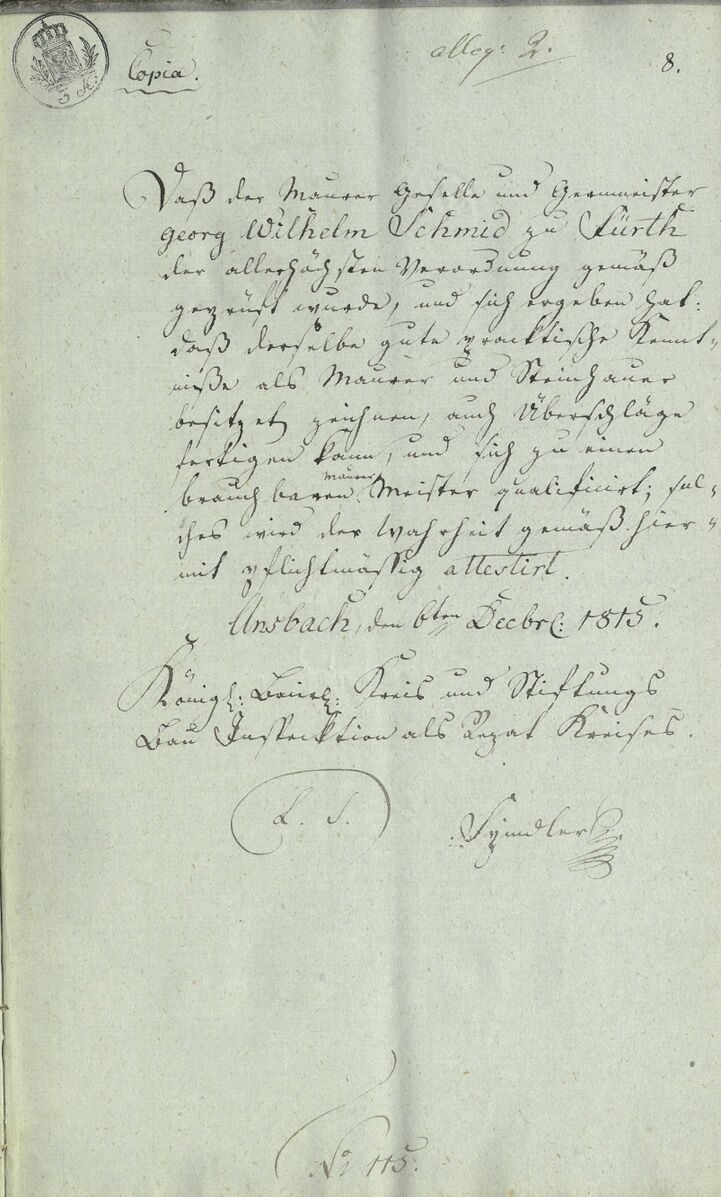 alleg: 2.
8.
3 K:
Copia.
Daß der Maurer Geselle und Germeister
Georg Wilhelm Schmid zu Fürth
der allerhöchsten Verordnung gemäß
geprüft wurde, und sich ergeben hat:
daß derselbe gute pracktische Kennt-
niße als Maurer und Steinhauer
besitzet, zeichnen, auch Überschläge
fertigen kann, und sich zu einen
brauchbaren Maurer Meister qualificirt; sol-
ches wird der Wahrheit gemäß hier-
mit pflichtmässig attestirt.
Ansbach, den 6ten Decbr: 1815.
Königl: Baierl: Kreis und Stiftungs
Bau Inspecktion als Rezat Kreises.
L. S.
No 115.